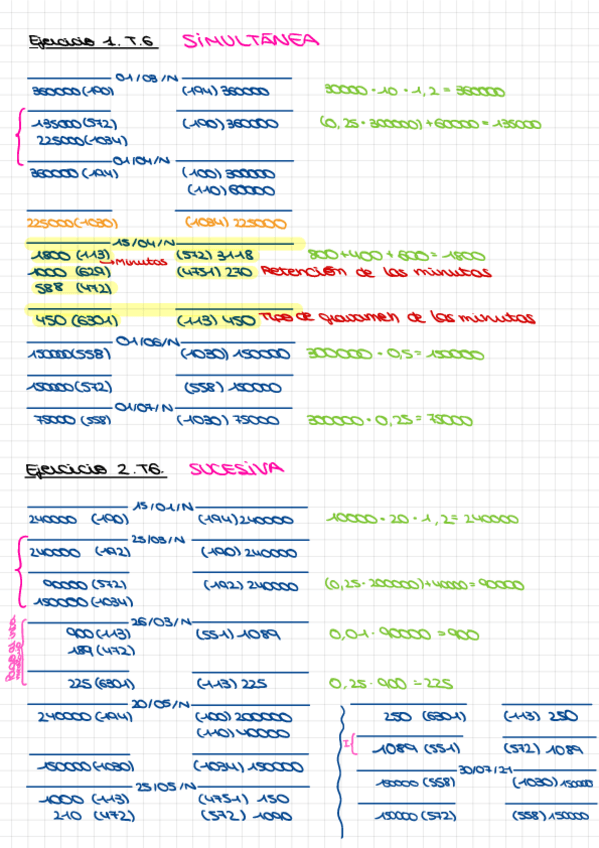 Ejercicio 1. T.6 SIMULTÁNEA
01/03/N
360000 (190) (194) 360000 30000 · 10 · 1,2 = 360000
135000 (572) (190) 360000 (0,25 · 300000) + 60000 = 135000
225000 (1034)
01/04/N
360000 (194) (100) 300000
(110) 60000
225000 (1030) (1034) 225000
15/04/N
1800 (113) → Minutas (572) 3118 800 + 400 + 600 = 1800
1000 (629) (4751) 270 Retención de las minutas
588 (472)
450 (6301) (113) 450 Tipo de gravamen de las minutas
01/06/N
150000 (558) (1030) 150000 300000 · 0,5 = 150000
150000 (572) (558) 150000
01/07/N
75000 (558) (1030) 75000 300000 · 0,25 = 75000
Ejercicio 2. T6. SUCESIVA
15/01/N
240000 (190) (194) 240000 10000 · 20 · 1,2 = 240000
25/03/N
240000 (192) (190) 240000
90000 (572) (192) 240000 (0,25 · 200000) + 40000 = 90000
150000 (1034)
26/03/N
900 (113) (551) 1089 0,01 · 90000 = 900
189 (472)
225 (6301) (113) 225 0,25 · 900 = 225
20/05/N
240000 (194) (100) 200000
(110) 40000
150000 (1030) (1034) 150000
25/05/N
1000 (113) (4751) 150
210 (472) (572) 1090
250 (6301) (113) 250
I { 1089 (551) (572) 1089
30/07/21
150000 (558) (1030) 150000
150000 (572) (558) 150000